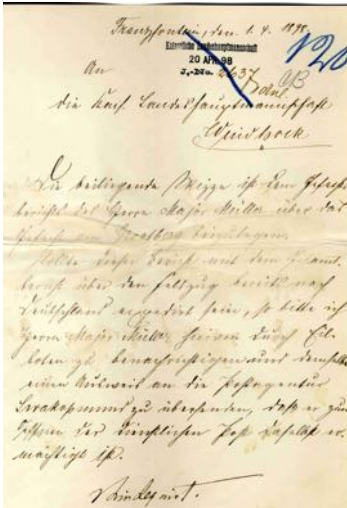 Franzfontein, den 1. 4. 1898.
Kaiserliche Landeshauptmannschaft
20 APR. 98
J.-No. 2637
120
An
die Kais. Landeshauptmannschaft
Windhoek
Die beiliegende Skizze ist dem Gefechts-
bericht des Herrn Major Müller über das
Gefecht am Grootberg beizulegen.
Sollte dieser Bericht mit dem Gesamt-
bericht über den Feldzug bereits nach
Deutschland expedirt sein, so bitte ich
Herrn Major Müller hiervon durch Eil-
boten zu benachrichtigen und demselben
einen Ausweis an die Postagentur
zu übersenden, daß er zum
Öffnen der dienstlichen Post daselbst er-
mächtigt ist.